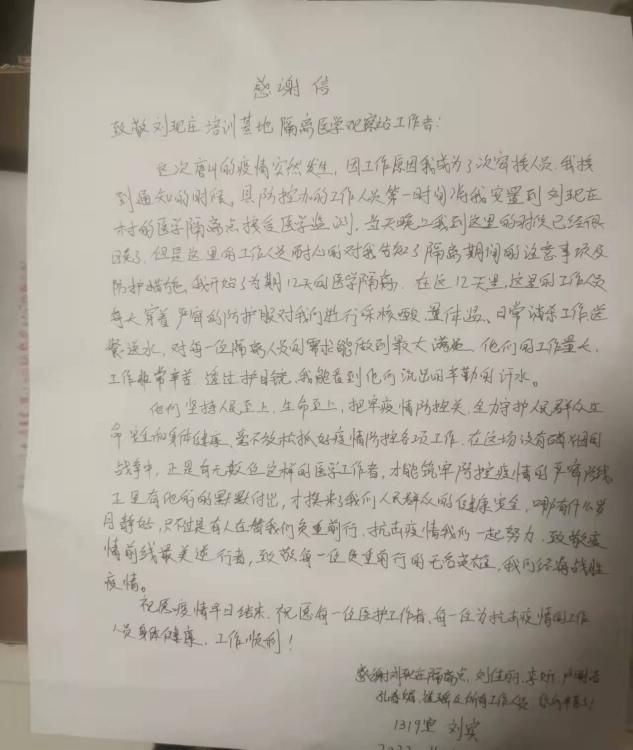 感谢信
致敬刘现庄培训基地隔离医学观察站工作者:
这次唐山的疫情突然发生,因工作原因我成为了次密接人员.我接
到通知的时候,县防控办的工作人员第一时间将我安置到刘现庄
村的医学隔离点接受医学监测,当天晚上我到这里的时候已经很
晚了.但是这里的工作人员耐心的对我告知了隔离期间的注意事项及
防护措施,我开始了为期12天的医学隔离.在这12天里,这里的工作人员
每天穿着严密的防护服对我们进行采核酸,量体温、日常消杀工作送
餐送水,对每一位隔离人员的需求能做到最大满足.他们的工作量大,
工作非常辛苦.透过护目镜,我能看到他们流出的辛勤的汗水。
他们坚持人民至上,生命至上,把牢疫情防控关.全力守护人民群众生
命安全和身体健康.毫不放松抓好疫情防控各项工作.在这场没有硝烟的
战争中,正是有无数位这样的医学工作者,才能筑牢防控疫情的严密防线,
正是有他们的默默付出,才换来了我们人民群众的健康安全,哪有什么岁
月静好,只不过是有人在替我们负重前行.抗击疫情我们一起努力.致敬疫
情前线最美逆行者,致敬每一位负重前行的无名英雄,我们终将战胜
疫情。
祝愿疫情早日结束.祝愿每一位医护工作者,每一位为抗击疫情的工作
人员身体健康、工作顺利!
感谢刘现庄隔离点,刘佳丽,李
及所有工作人员 你们辛苦了!
1319室 刘实